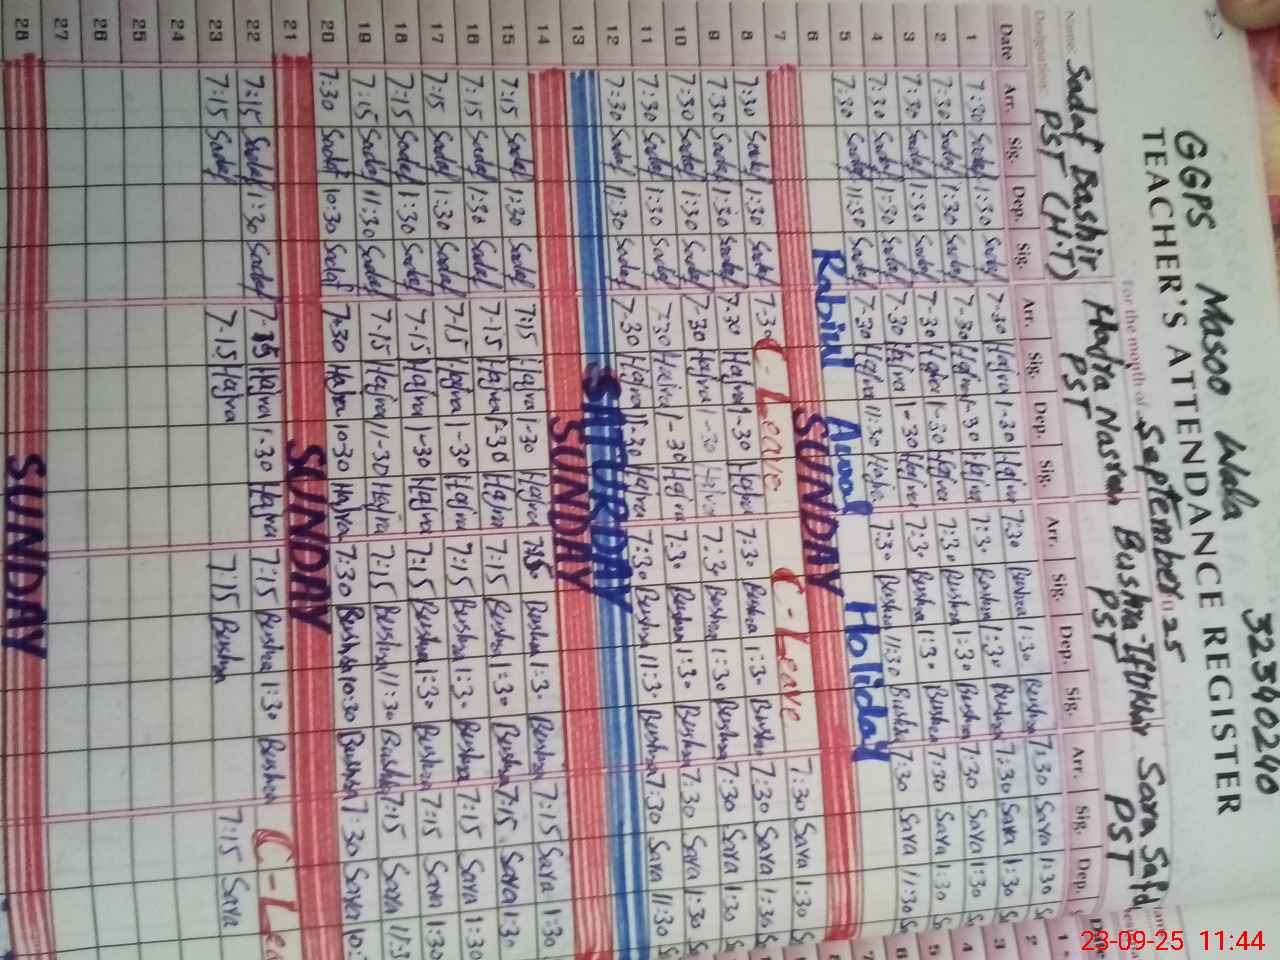 32340240
GGPS Masoo Wala
TEACHER'S ATTENDANCE REGISTER
For the month of September 2025
Name: Sadaf Bashir Hajra Nasreen Bushra Iftikhir Sara Safd
Designation: PST (H.T) PST PST PST
Date Arr. Sig. Dep. Sig. Arr. Sig. Dep. Sig. Arr. Sig. Dep. Sig. Arr. Sig. Dep.
1 7:30 Sadaf 1:30 Sadaf 7-30 Hajra 1-30 Hajra 7:30 Bushra 1:30 Bushra 7:30 Sara 1:30
2 7:30 Sadaf 1:30 Sadaf 7-30 Hajra 1-30 Hajra 7:30 Bushra 1:30 Bushra 7:30 Sara 1:30
3 7:30 Sadaf 1:30 Sadaf 7-30 Hajra 1-30 Hajra 7:30 Bushra 1:30 Bushra 7:30 Sara 1:30
4 7:30 Sadaf 1:30 Sadaf 7-30 Hajra 1-30 Hajra 7:30 Bushra 1:30 Bushra 7:30 Sara 1:30
5 7:30 Sadaf 11:30 Sadaf 7-30 Hajra 11:30 Hajra 7:30 Bushra 11:30 Bushra 7:30 Sara 11:30
6 Rabiul Awal Holiday
7 SUNDAY
8 7:30 Sadaf 1:30 Sadaf 7-30 C-Leave C-Leave 7:30 Sara 1:30
9 7:30 Sadaf 1:30 Sadaf 7-30 Hajra 1-30 Hajra 7:30 Bushra 1:30 Bushra 7:30 Sara 1:30
10 7:30 Sadaf 1:30 Sadaf 7-30 Hajra 1-30 Hajra 7:30 Bushra 1:30 Bushra 7:30 Sara 1:30
11 7:30 Sadaf 1:30 Sadaf 7-30 Hajra 1-30 Hajra 7:30 Bushra 1:30 Bushra 7:30 Sara 1:30
12 7:30 Sadaf 11:30 Sadaf 7-30 Hajra 11-30 Hajra 7:30 Bushra 11:30 Bushra 7:30 Sara 11:30
13 SATURDAY
14 SUNDAY
15 7:15 Sadaf 1:30 Sadaf 7:15 Hajra 1-30 Hajra 7:15 Bushra 1:30 Bushra 7:15 Sara 1:30
16 7:15 Sadaf 1:30 Sadaf 7-15 Hajra 1-30 Hajra 7:15 Bushra 1:30 Bushra 7:15 Sara 1:30
17 7:15 Sadaf 1:30 Sadaf 7-15 Hajra 1-30 Hajra 7:15 Bushra 1:30 Bushra 7:15 Sara 1:30
18 7:15 Sadaf 1:30 Sadaf 7-15 Hajra 1-30 Hajra 7:15 Bushra 1:30 Bushra 7:15 Sara 1:30
19 7:15 Sadaf 11:30 Sadaf 7-15 Hajra 11-30 Hajra 7:15 Bushra 11:30 Bushra 7:15 Sara 11:3
20 7:30 Sadaf 10:30 Sadaf 7-30 Hajra 10-30 Hajra 7:30 Bushra 10:30 Bushra 7:30 Sara 10:
21 SUNDAY
22 7:15 Sadaf 1:30 Sadaf 7-15 Hajra 1-30 Hajra 7:15 Bushra 1:30 Bushra C-Lea
23 7:15 Sadaf 7-15 Hajra 7:15 Bushra 7:15 Sara
24
25
26
27
28 SUNDAY
23-09-25 11:44